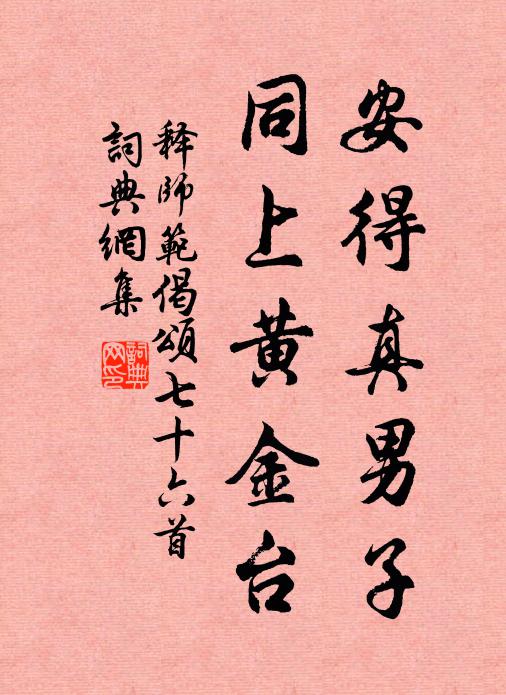 安得真男子
同上黄金台
释师範偈頌七十六首
詞典網集
詞典网印